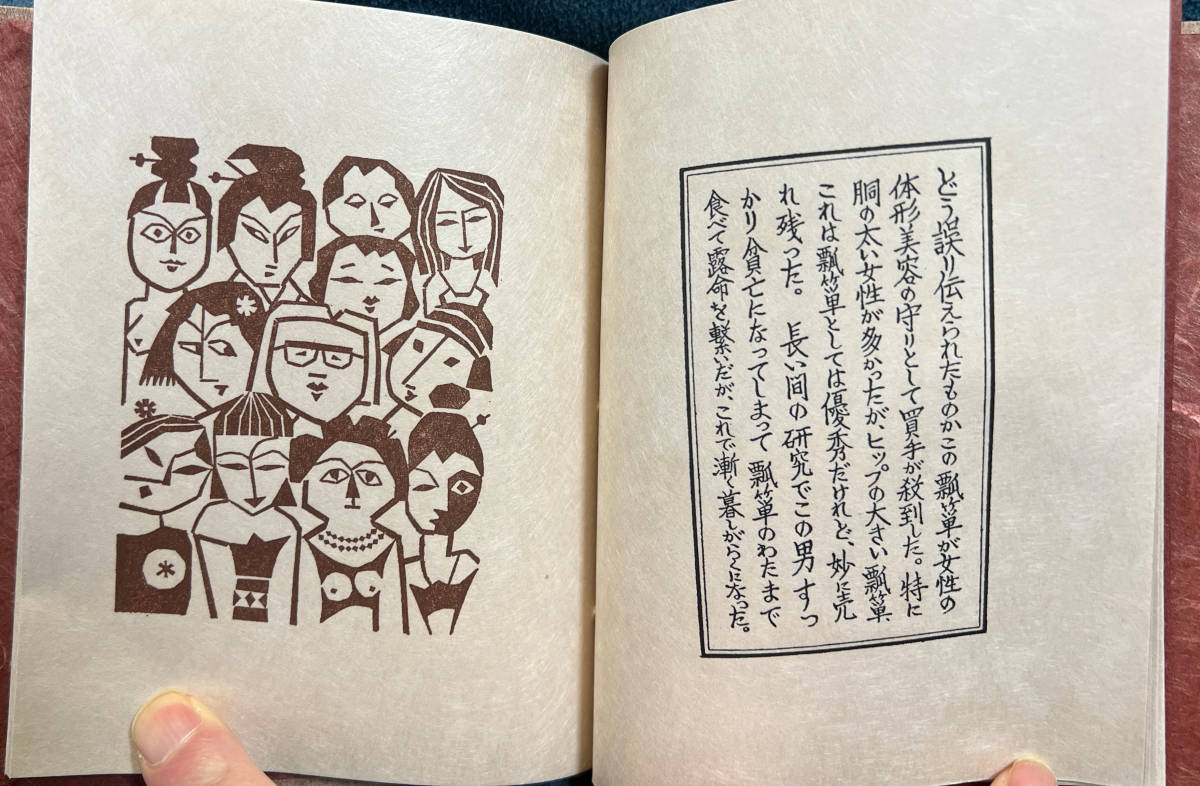 どう誤り伝えられたものかこの瓢箪が女性の
体形美容の守りとして買手が殺到した。特に
胴の太い女性が多かったが、ヒップの大きい瓢箪、
これは瓢箪としては優秀だけれど、妙に売
れ残った。 長い間の研究でこの男すっ
かり貧亡になってしまって瓢箪のわたまで
食べて露命を繋いだが、これで漸く暮しがらくになった。